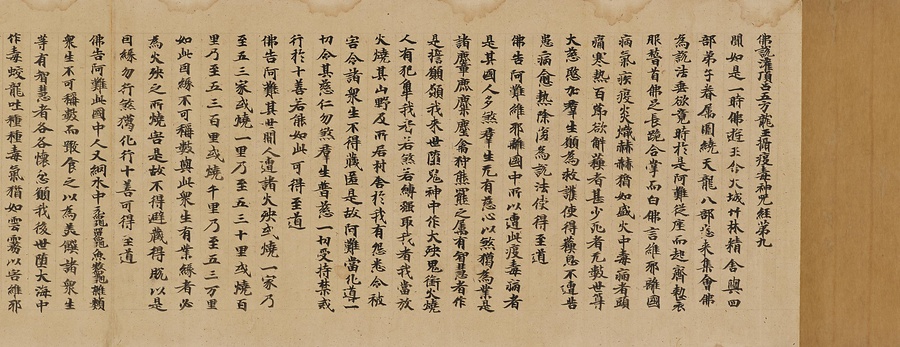 佛說灌頂召五方龍王攝疫毒神呪經第九
聞如是一時佛遊王舍大城竹林精舍與四
部弟子眷屬圍繞天龍八部悉來集會佛
為說法垂欲竟時於是阿難從座而起齊整衣
服稽首佛足長跪合掌而白佛言維耶離國
病氣疾疫炎熾赫赫猶如盛火中毒病者頭
痛寒熱百節欲解蘇者甚少死者无數世尊
大慈愍加羣生願為救護使得蘇息不遭苦
患病愈熱除復為說法使得至道
佛告阿難維耶離國中所以遭此疫毒病者
是其國人多煞羣生无有慈心以煞獵為業是
諸麞鹿麋麈禽狩熊羆之屬有智慧者作
是誓願願我來世墮鬼神中作大殃鬼銜火燒
人有犯我者若煞若縛強取我者我當放
火燒其山野及所居村舍於我有怨悉令被
害令諸眾生不得藏匿是故阿難當化導一
切令其慈仁勿煞羣生普慈一切受持禁戒
行於十善若能如此可得至道
佛告阿難其世間人遭諸火殃或燒一家乃
至五三家或燒一里乃至五三十里或燒百
里乃至五三百里或燒千里乃至五三万里
如此因緣不可稱數與此眾生有業緣者必
為火殃之所燒害是故不得避藏得脫以是
因緣勿行煞獵化行十善可得至道
佛告阿難此國中人又網水中黿鼉魚鱉雜類
眾生不可稱數而聚食之以為美饌諸眾生
等有智慧者各各懷忿願我後世墮大海中
作毒蛟龍吐種種毒氣猶如雲霧以害維耶